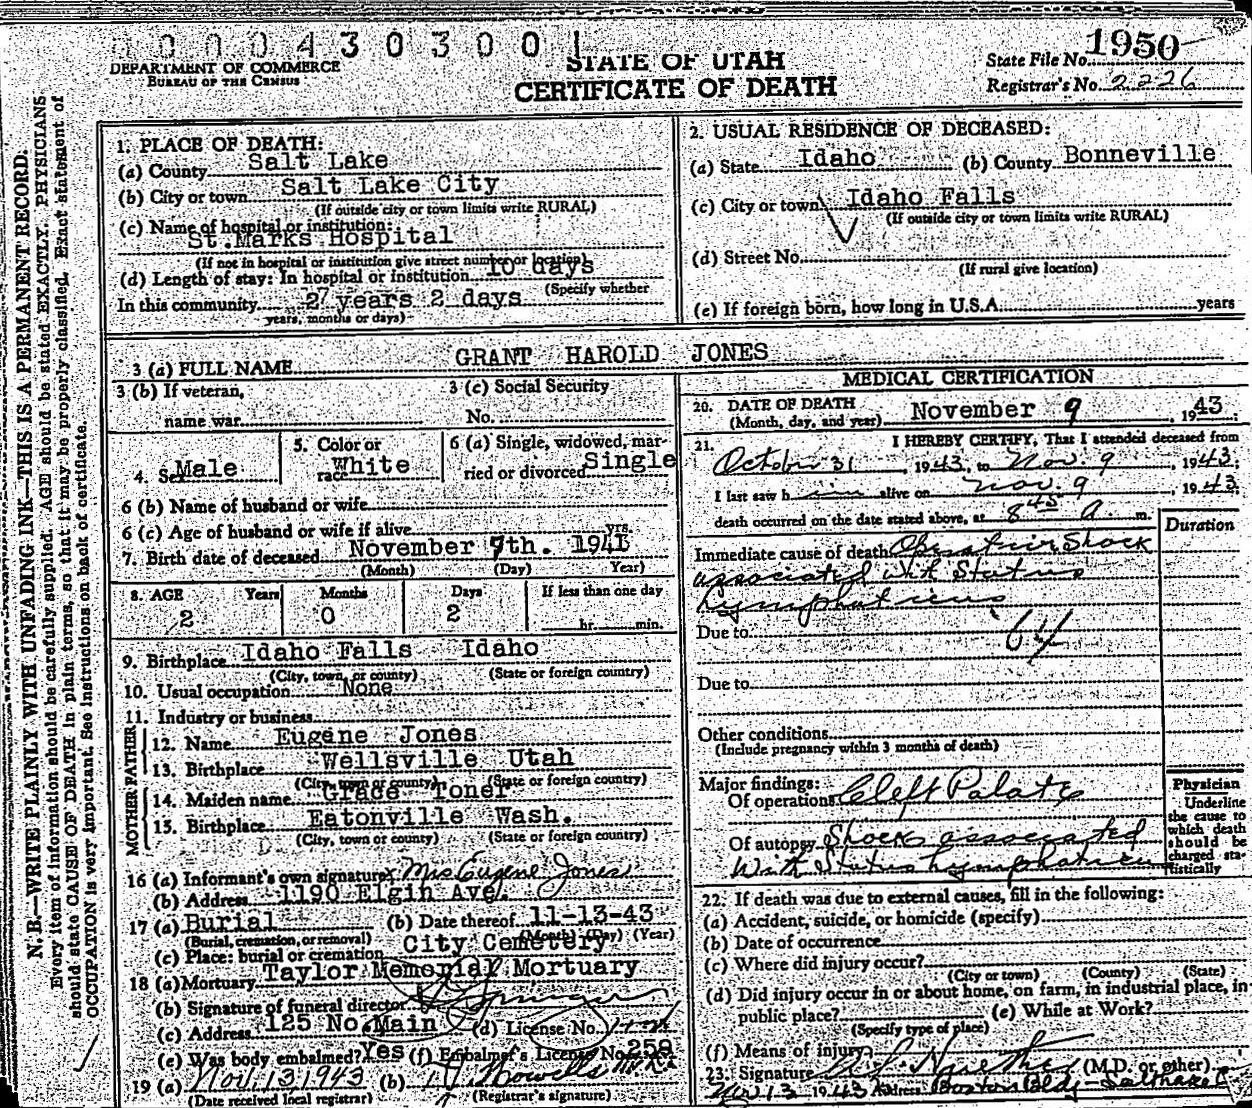 0000430300
DEPARTMENT OF COMMERCE
BUREAU OF THE CENSUS
STATE OF UTAH
CERTIFICATE OF DEATH
State File No. 1950
Registrar's No. 2226
N. B.—WRITE PLAINLY WITH UNFADING INK—THIS IS A PERMANENT RECORD.
Every item of information should be carefully supplied. AGE should be stated EXACTLY. PHYSICIANS
should state CAUSE OF DEATH in plain terms, so that it may be properly classified. Exact statement of
OCCUPATION is very important. See instructions on back of certificate.
1. PLACE OF DEATH:
(a) County Salt Lake
(b) City or town Salt Lake City
(If outside city or town limits write RURAL)
(c) Name of hospital or institution:
St. Marks Hospital
(If not in hospital or institution give street number or location)
(d) Length of stay: In hospital or institution 10 days
(Specify whether
In this community 2 years 2 days
years, months or days)
2. USUAL RESIDENCE OF DECEASED:
(a) State Idaho (b) County Bonneville
(c) City or town Idaho Falls
(If outside city or town limits write RURAL)
(d) Street No.
(If rural give location)
(e) If foreign born, how long in U.S.A. years
3 (a) FULL NAME GRANT HAROLD JONES
3 (b) If veteran,
name war
3 (c) Social Security
No.
4. Sex Male
5. Color or
race White
6 (a) Single, widowed, mar-
ried or divorced Single
6 (b) Name of husband or wife
6 (c) Age of husband or wife if alive yrs.
7. Birth date of deceased November 7th. 1941
(Month) (Day) Year)
8. AGE Years Months Days If less than one day
2 0 2 hr. min.
9. Birthplace Idaho Falls Idaho
(City, town, or county) (State or foreign country)
10. Usual occupation None
11. Industry or business
FATHER
12. Name Eugene Jones
13. Birthplace Wellsville Utah
(City, town or county) (State or foreign country)
MOTHER
14. Maiden name Grace Toner
15. Birthplace Eatonville Wash.
(City, town or county) (State or foreign country)
16 (a) Informant's own signature x Mrs Eugene Jones
(b) Address 1190 Elgin Ave.
17 (a) Burial (b) Date thereof 11-13-43
(Burial, cremation, or removal) (Month) (Day) (Year)
(c) Place: burial or cremation City Cemetery
18 (a) Mortuary Taylor Memorial Mortuary
(b) Signature of funeral director
(c) Address 125 No. Main (d) License No.
(e) Was body embalmed? Yes (f) Embalmer's License No. 258
19 (a) Nov. 13 1943 (b)
(Date received local registrar) (Registrar's signature)
MEDICAL CERTIFICATION
20. DATE OF DEATH
(Month, day, and year) November 9, 1943
21. I HEREBY CERTIFY, That I attended deceased from
October 31, 1943, to Nov. 9, 1943
I last saw him alive on Nov. 9, 1943
death occurred on the date stated above, at 8 45 a. m.
Duration
Immediate cause of death Operative Shock
associated with Status
Lymphaticus
Due to
64
Due to
Other conditions
(Include pregnancy within 3 months of death)
Major findings:
Of operations Cleft Palate
Of autopsy Shock associated
with Status Lymphaticus
Physician
Underline
the cause to
which death
should be
charged sta-
tistically
22. If death was due to external causes, fill in the following:
(a) Accident, suicide, or homicide (specify)
(b) Date of occurrence
(c) Where did injury occur?
(City or town) (County) (State)
(d) Did injury occur in or about home, on farm, in industrial place, in
public place? (e) While at Work?
(Specify type of place)
(f) Means of injury
23. Signature (M.D. or other)
Nov 13 1943 Address Boston Bldg - Salt Lake C